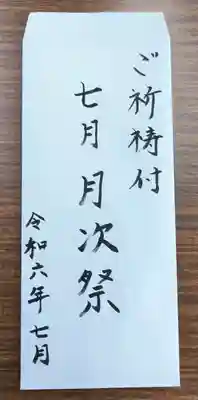 ご祈祷付
七月 月次祭
令和六年七月